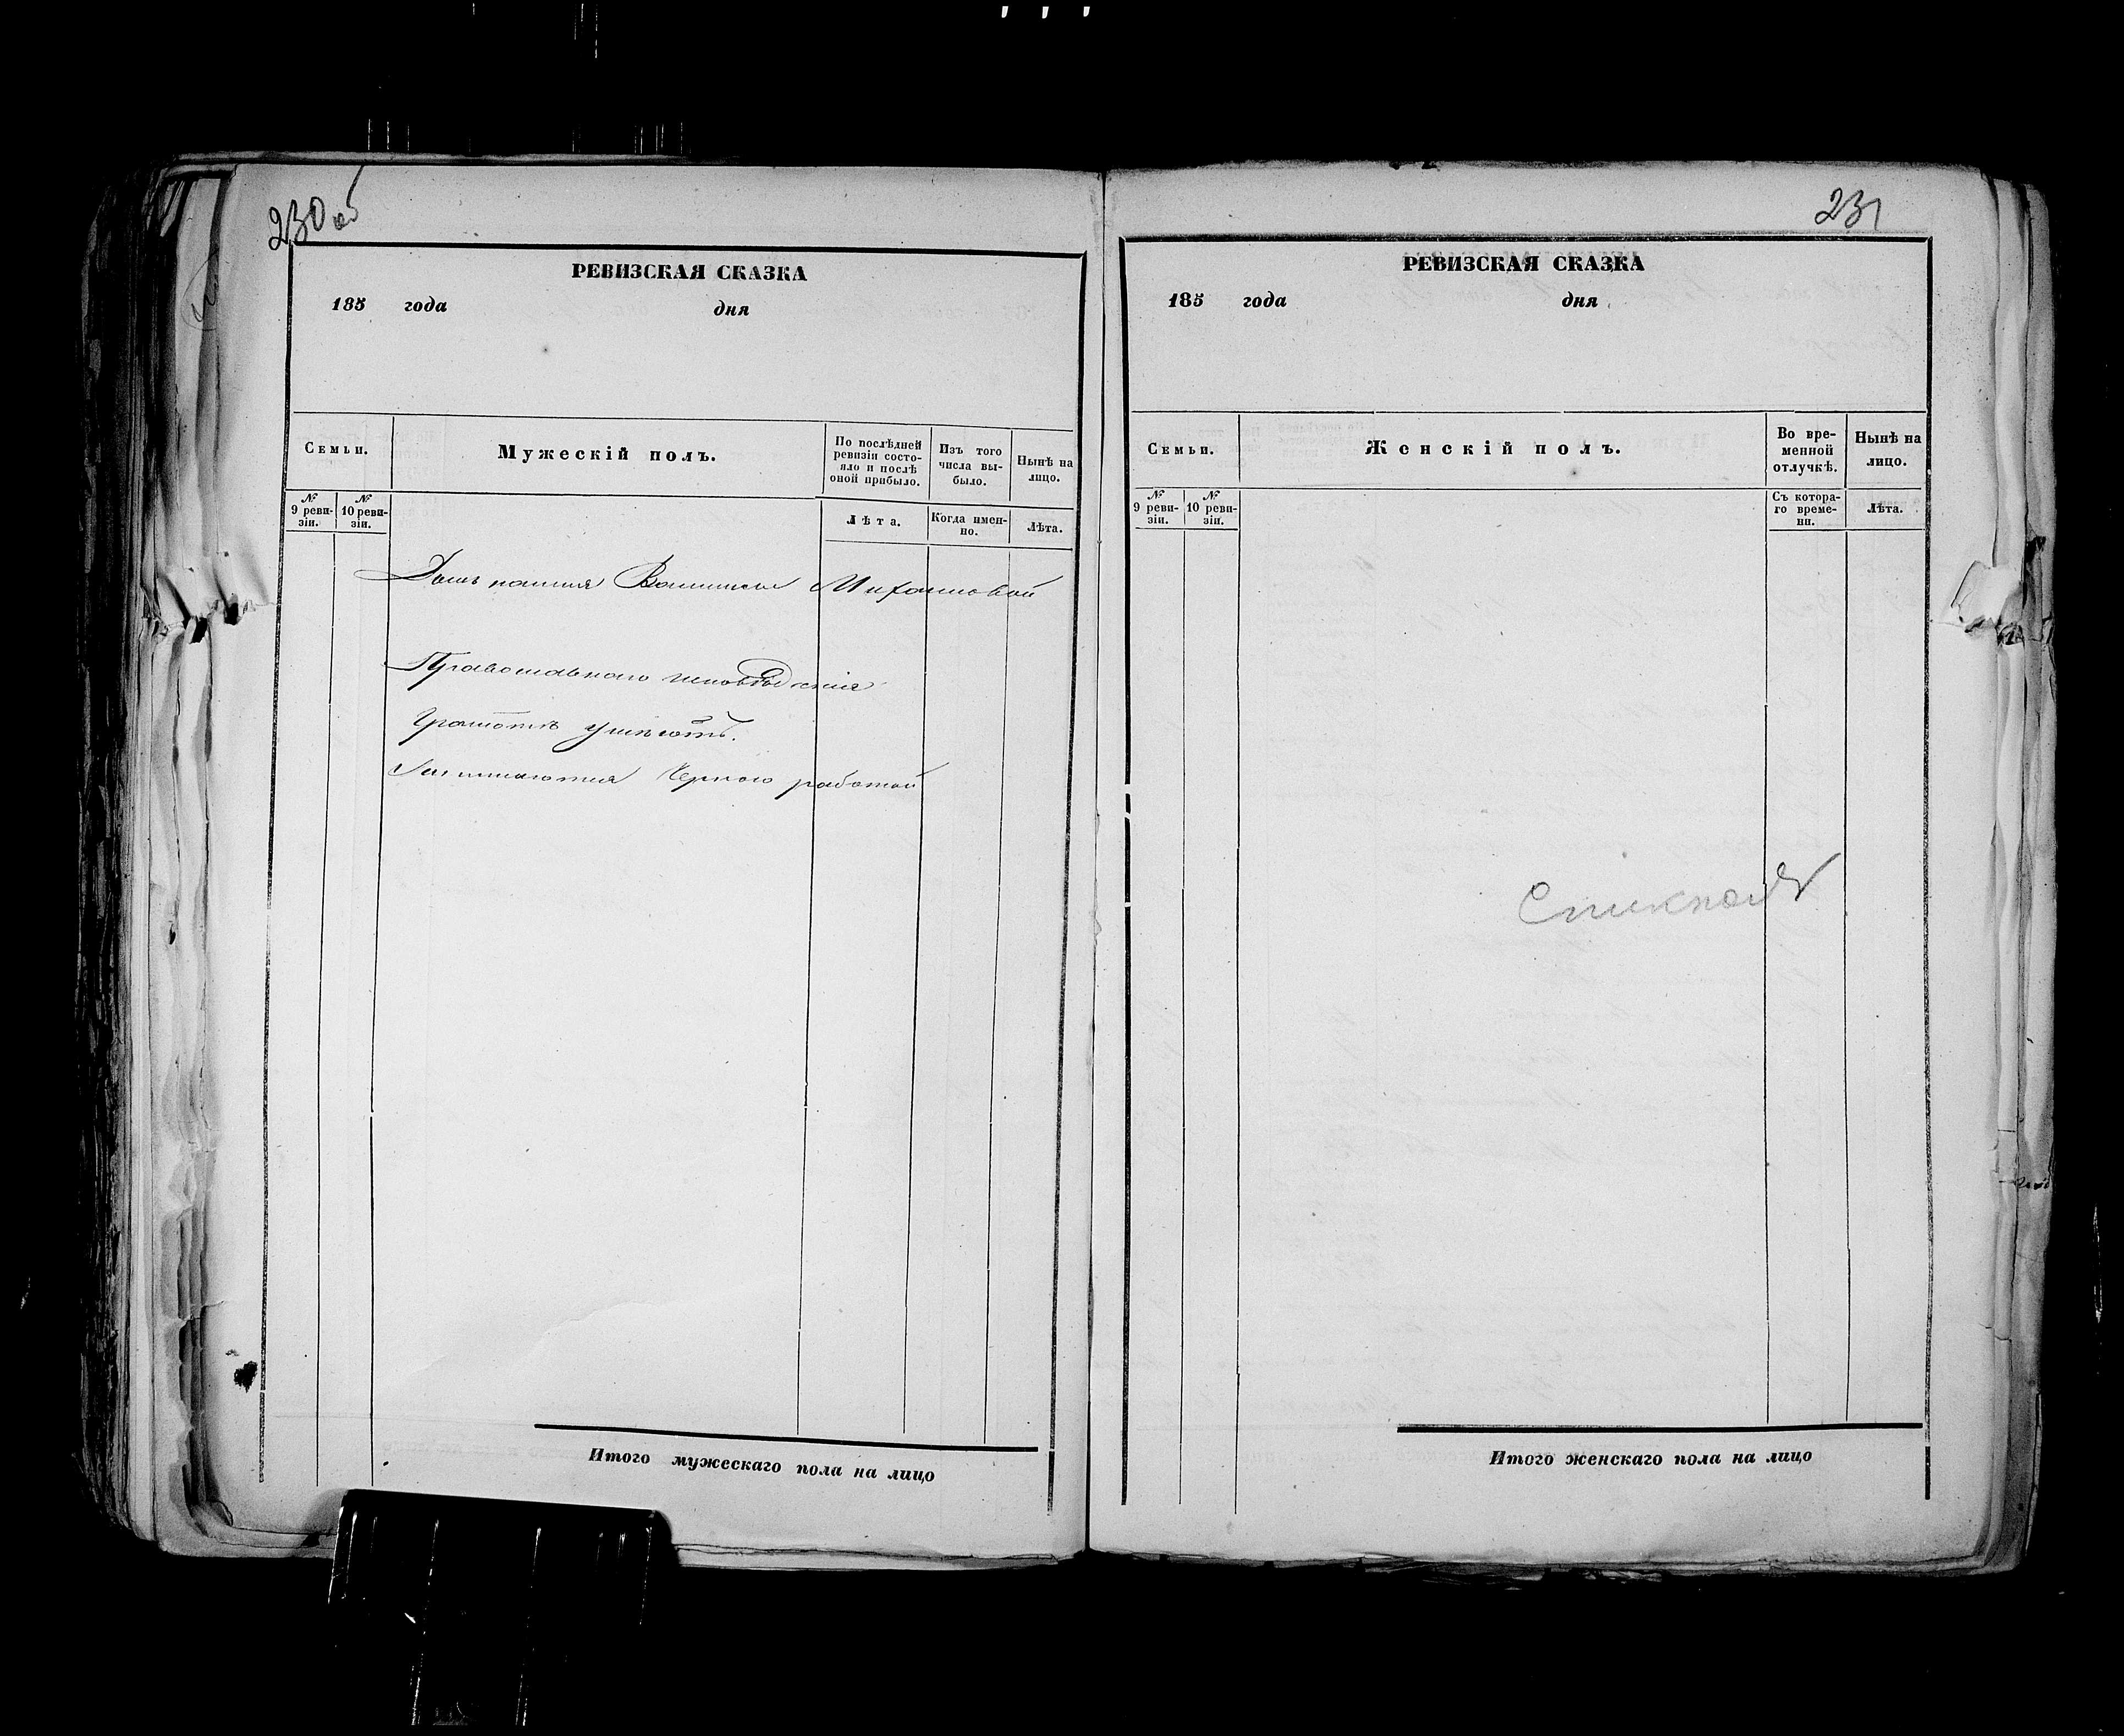 230 об
РЕВИЗСКАЯ СКАЗКА
185 года дня
Семьи.
Мужескій полъ.
По послѣдней ревизіи состояло и послѣ оной прибыло.
Изъ того числа выбыло.
Нынѣ на лицо.
№ 9 ревизіи.
№ 10 ревизіи.
Лѣта.
Когда именно.
Лѣта.
Михайловой
Православнаго исповѣданія
Грамотѣ умѣютъ.
Занимаются Черною работой
Итого мужескаго пола на лицо
231
РЕВИЗСКАЯ СКАЗКА
185 года дня
Семьи.
Женскій полъ.
Во временной отлучкѣ.
Нынѣ на лицо.
№ 9 ревизіи.
№ 10 ревизіи.
Съ котораго времени.
Лѣта.
Итого женскаго пола на лицо